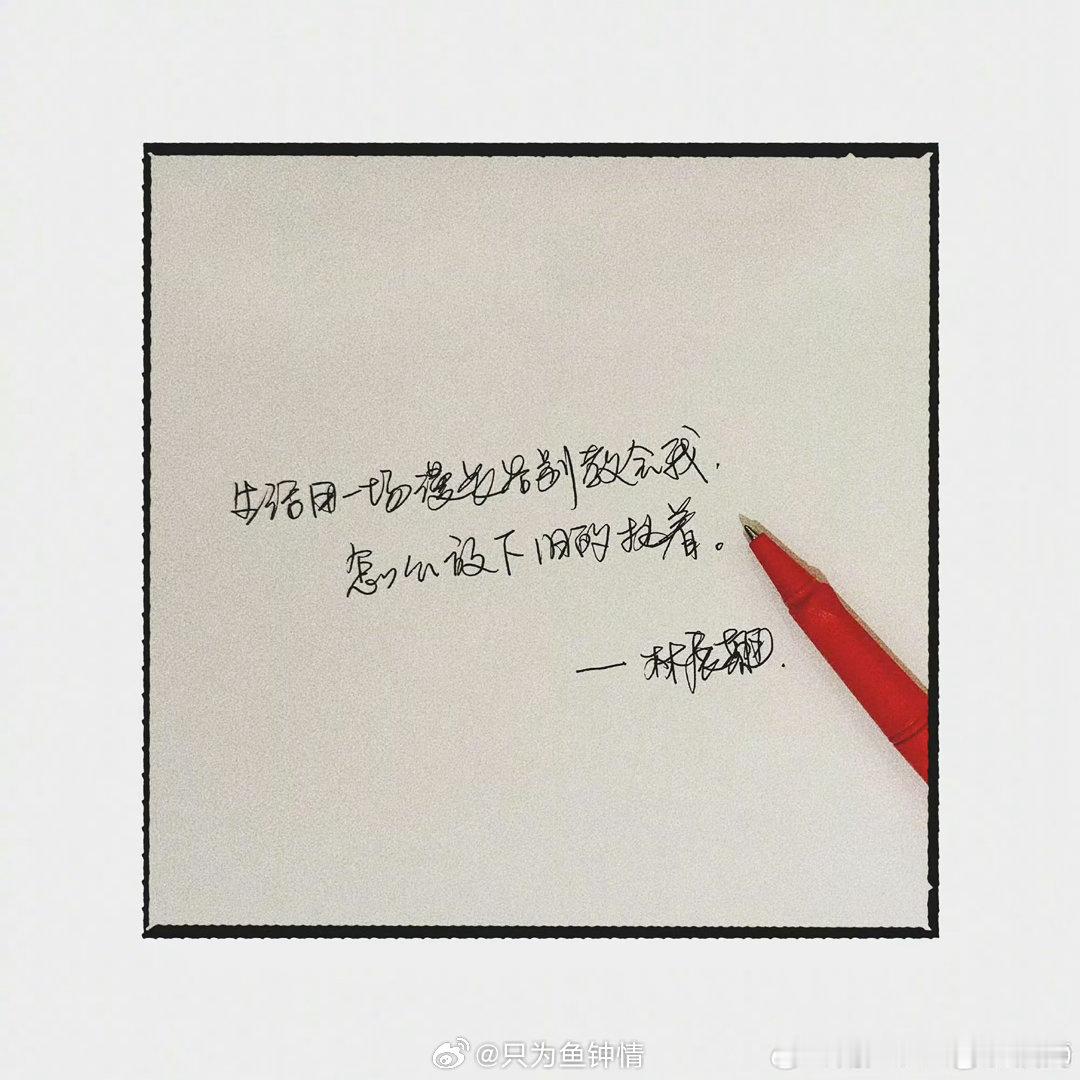 生活用一场漫长告别教会我,
怎么放下旧的执着。
— 林辰
@只为鱼钟情